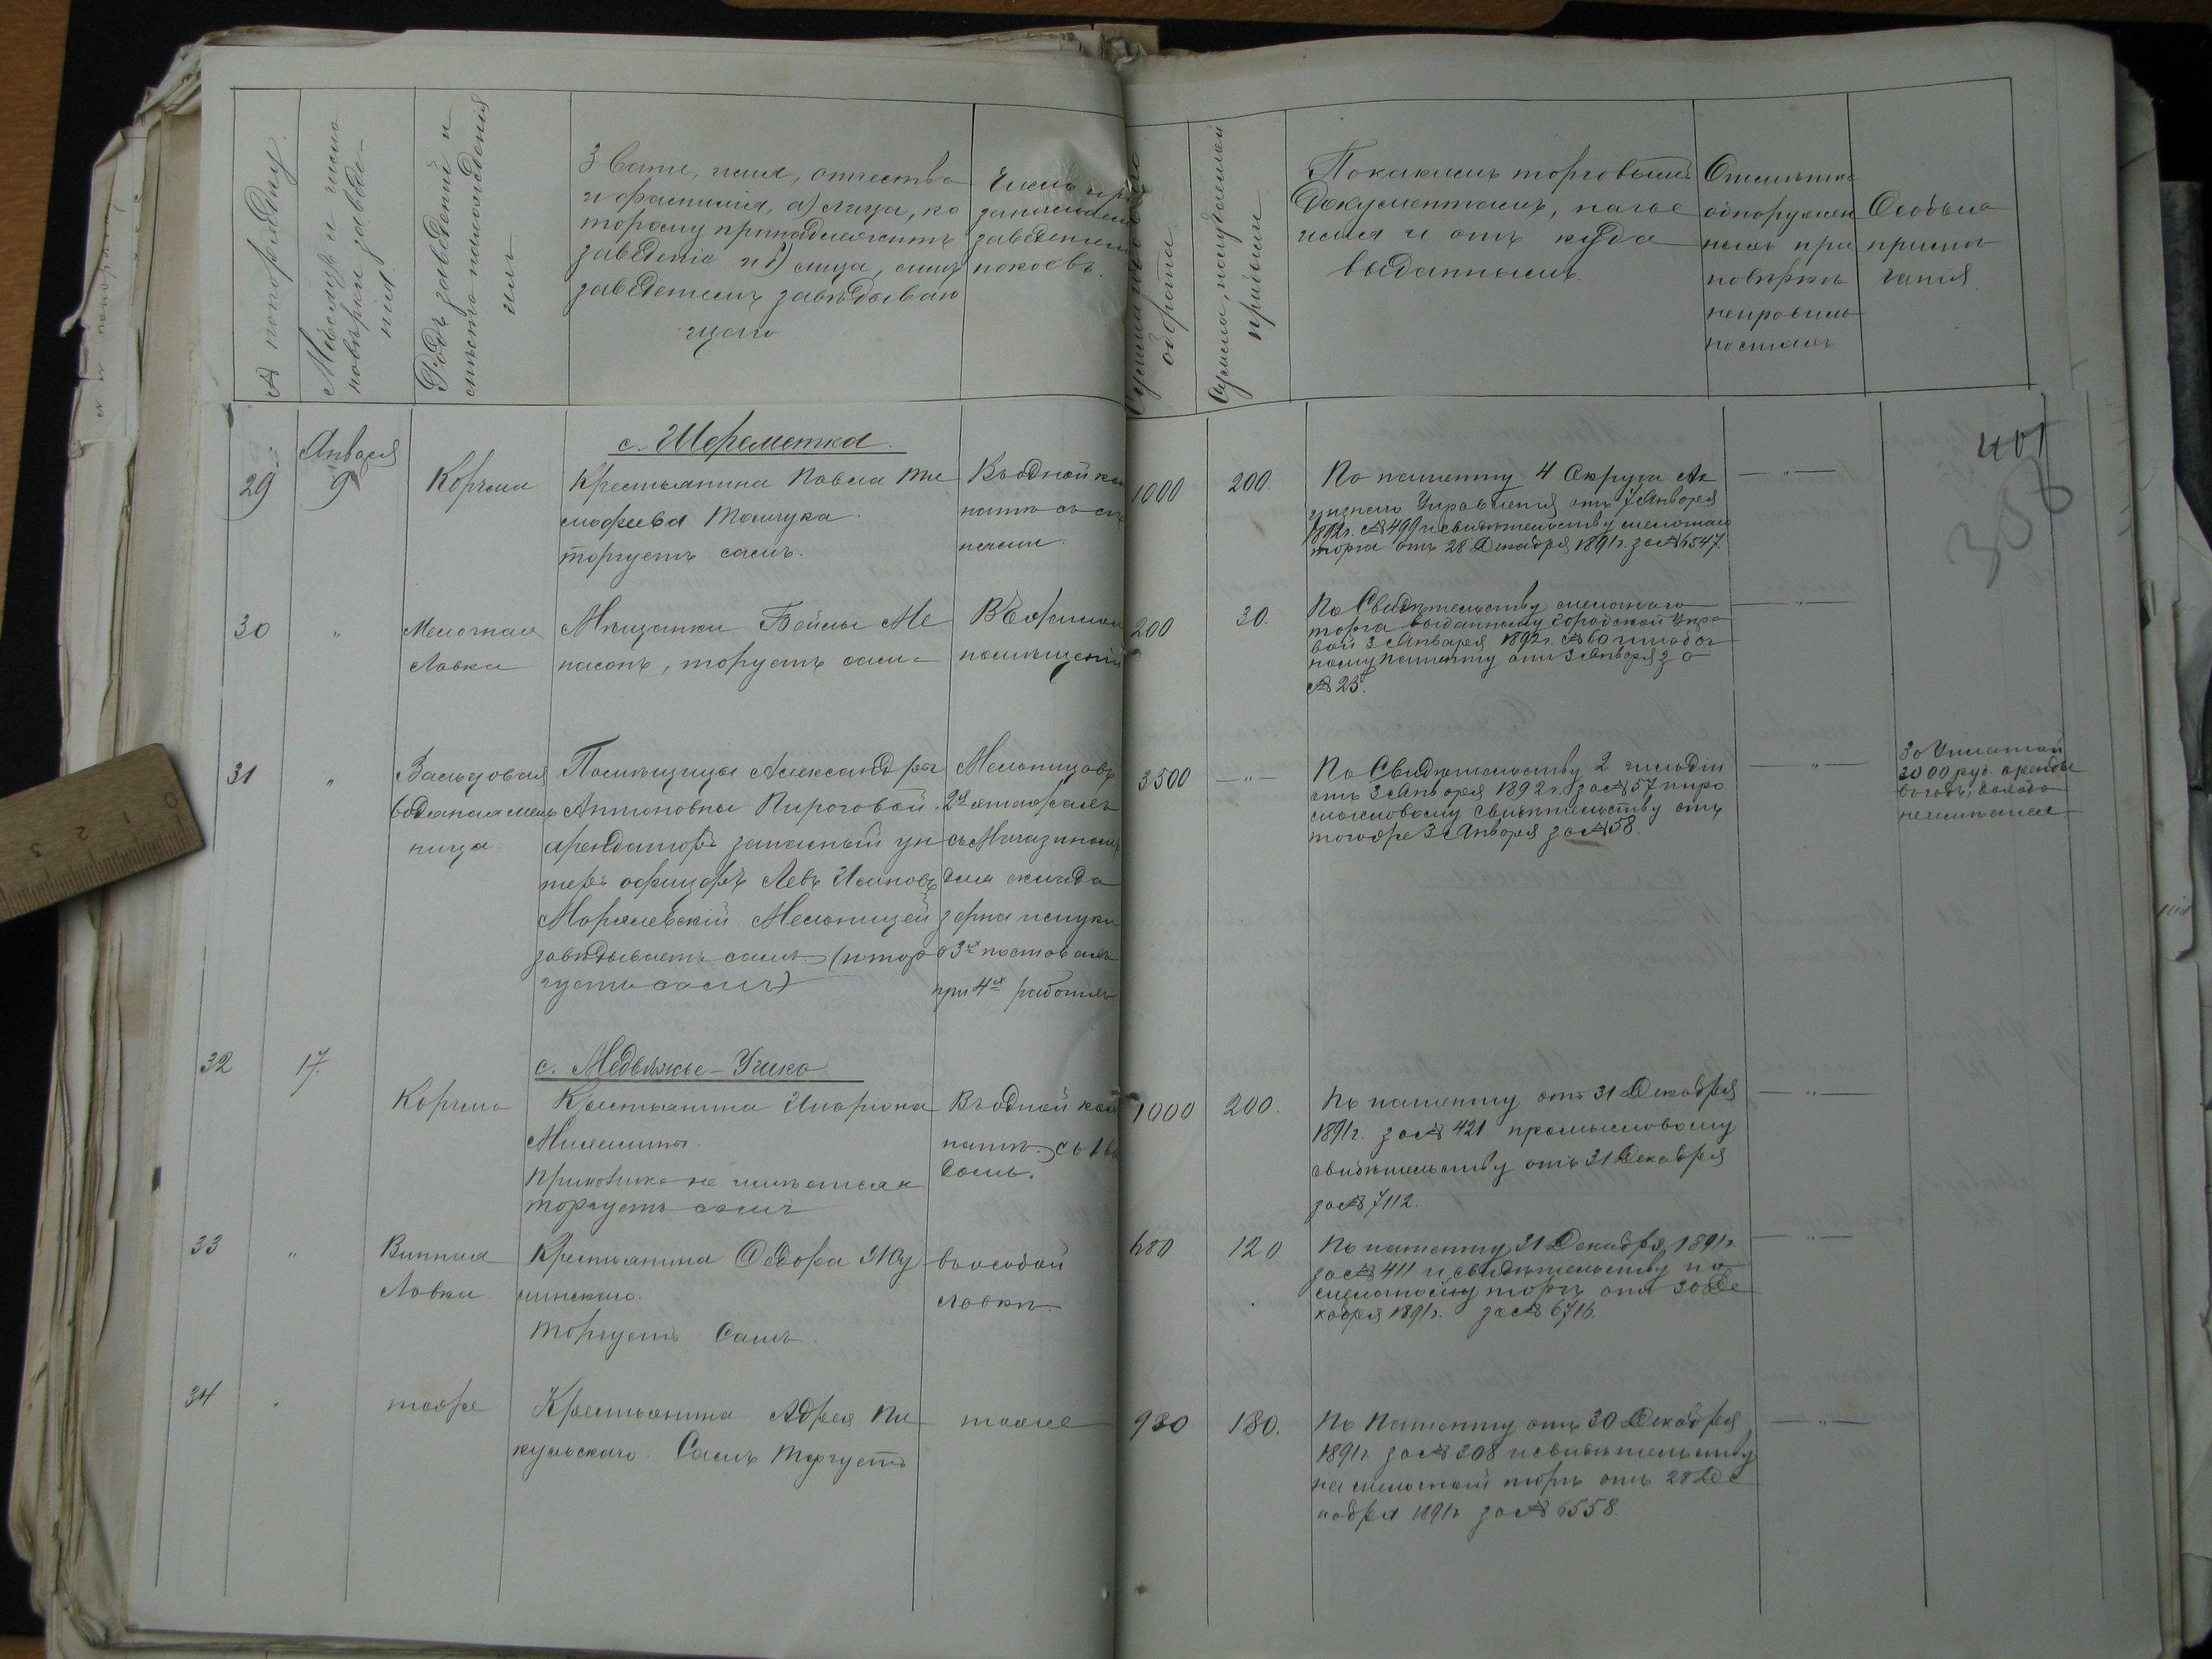 № по порядку.
Мѣсяцъ и число
повѣрки заведе-
нія.
Родъ заведеній и
мѣсто нахожденія
ихъ
Званіе, имя, отчество
и фамилія, а) лица, ко
торому принадлежитъ
заведеніе и б) лица, симъ
заведеніемъ завѣдываю
щаго
Число
заведенія
покоевъ.
оборота
Сумма, получаемой
прибыли
По какимъ торговымъ
документамъ, на чье
имя и отъ куда
выданнымъ.
Отмѣтка
обнаружен
ныхъ при
повѣркѣ
неправиль
ностяхъ
Особыя
примѣ
чанія.
401
358
с. Шереметка.
29
Января
9
Корчма
Крестьянина Павла Ти
мофеева
торгуетъ самъ.
Въ одной ком
натѣ съ сѣ
нями.
1000
200.
По патенту 4 Округа Ак
цизнаго Управленія отъ 7 Января
1892г. № 499 и свидѣтельству мелочнаго
торга отъ 28 Декабря 1891г. за № 6547.
— „ —
30
„
Мелочная
Лавка
Мѣщанки Бейлы Ме
насонъ, торгуетъ сама
помѣщеніи
200
30.
По Свидѣтельству мелочнаго
торга выданному Городской Упра
вой 3 Января 1892г. № 60 и табач
ному патенту отъ 3 Января за
№ 25.
— „ —
31
„
Вальцовая
водяная мель
ница.
Помѣщицы Александры
Антоновны Пироговой.
арендаторъ запасный ун
теръ офицеръ Левъ Ивановъ
Мельницей
завѣдываетъ самъ. (и тор
гуетъ самъ)
Мельница въ
2хъ этажахъ
съ Магазиномъ
для склада
зерна и муки
о 3хъ поставахъ
при 4хъ рабочихъ
3500
— „ —
По Свидѣтельству 2 гильдіи
отъ 3 Января 1892г. за № 57 и про
мысловому свидѣтельству отъ
того же 3 Января за № 58.
— „ —
За Уплатой
2000 руб. аренды
въ годъ,
32
17.
с. Медвѣжье-Ушко
Корчма
Крестьянина Иларіона
Прикащика не имѣется
торгуетъ самъ
Въ одной ком
натѣ. съ 1 вхо
домъ.
1000
200.
По патенту отъ 31 Декабря
1891г. за № 421 промысловому
свидѣтельству отъ 31 Декабря
за № 7112.
— „ —
33
„
Винная
Лавка.
Крестьянина Федора Жу
линскаго.
Торгуетъ Самъ.
въ особой
лавкѣ
680
120
По патенту 31 Декабря 1891г.
за № 411 и свидѣтельству на
мелочной торгъ отъ 30 Де
кабря 1891г. за № 6716.
— „ —
34
„
тоже
Крестьянина
Самъ Торгуетъ
тоже
980
180.
По Патенту отъ 30 Декабря
1891г. за № 308 и свидѣтельству
на мелочной торгъ отъ 28 Де
кабря 1891г. за № 6558.
— „ —